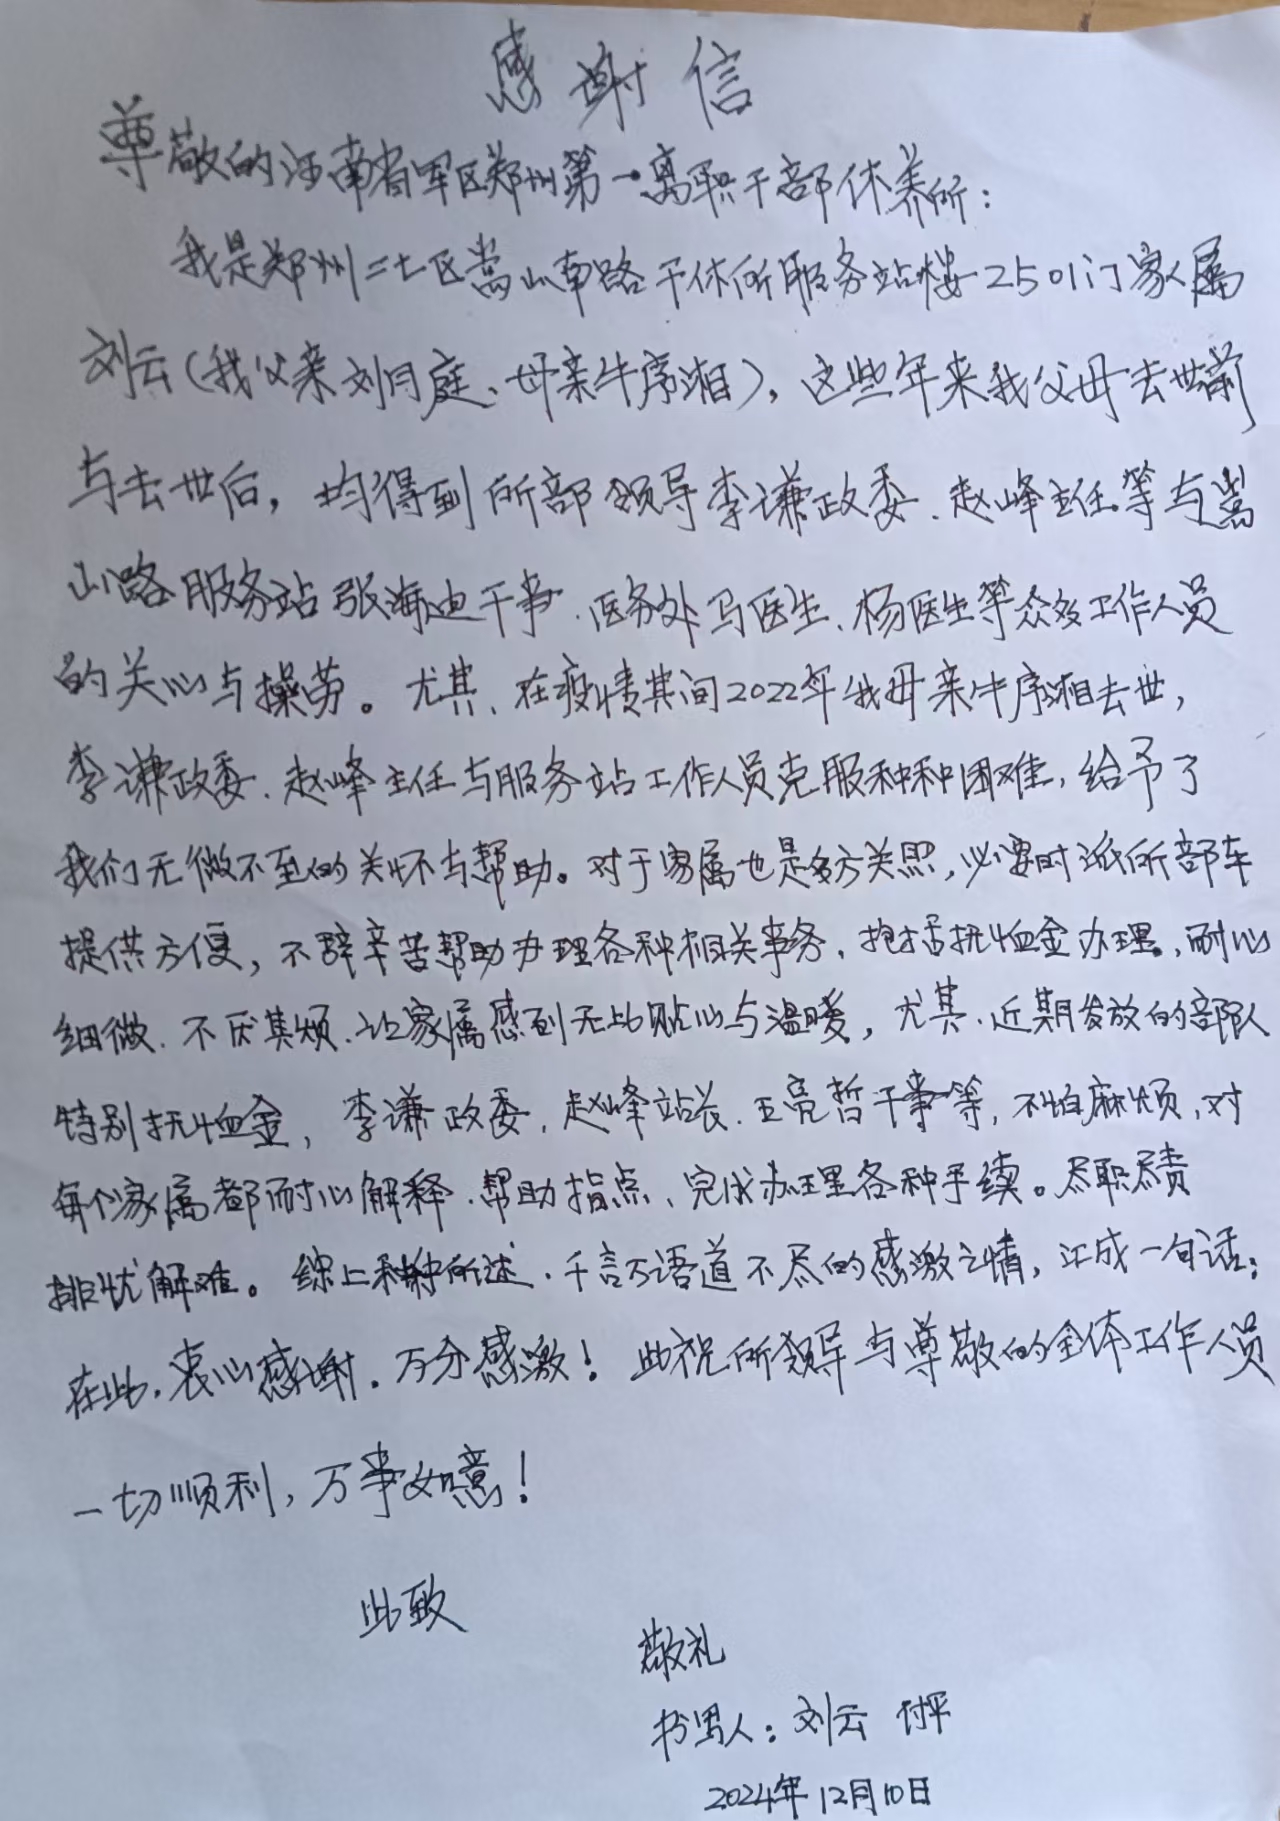 感谢信
尊敬的河南省军区郑州第一离职干部休养所：
我是郑州二七区嵩山南路干休所服务站楼2501门家属
刘云（我父亲刘月庭、母亲牛序湘），这些年来我父母去世前
与去世后，均得到所部领导李谦政委、赵峰主任等与嵩
山路服务站张海迪干事、医务处马医生、杨医生等众多工作人员
的关心与操劳。尤其、在疫情其间2022年我母亲牛序湘去世，
李谦政委、赵峰主任与服务站工作人员克服种种困难，给予了
我们无微不至的关怀与帮助。对于家属也是多方关照，必要时派所部车
提供方便，不辞辛苦帮助办理各种相关事务，抱括抚恤金办理。耐心
细微、不厌其烦、让家属感到无比贴心与温暖，尤其、近期发放的部队
特别抚恤金，李谦政委、赵峰站长、王亮哲干事等，不怕麻烦，对
每个家属都耐心解释、帮助指点、完成办理各种手续。尽职尽责
排忧解难。综上种种所述、千言万语道不尽的感激之情，汇成一句话：
在此、衷心感谢、万分感激！此祝所领导与尊敬的全体工作人员
一切顺利，万事如意！
此致
敬礼
书写人：刘云 付平
2024年12月10日